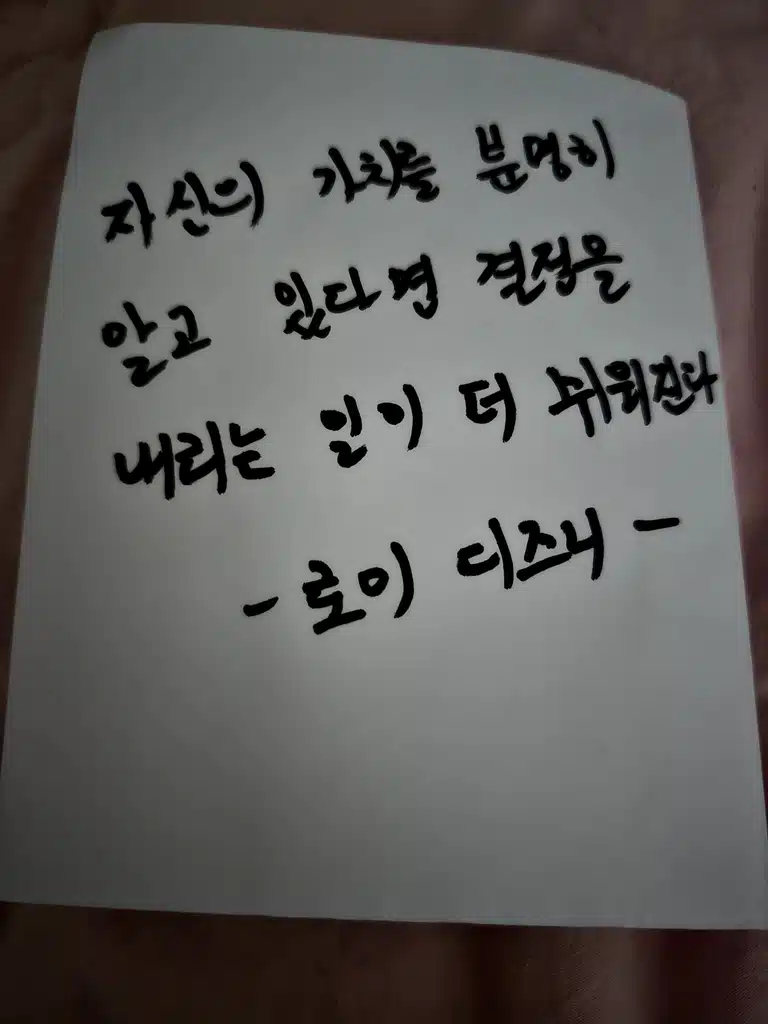 자신의 가치를 분명히
알고 있다면 결정을
내리는 일이 더 쉬워진다
- 로이 디즈니 -